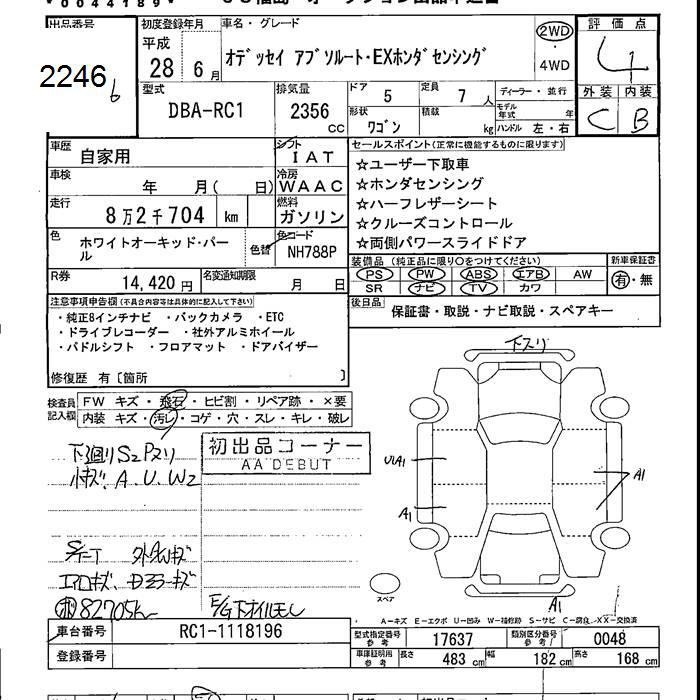 0044189
出品番号 初度登録年月 車名・グレード 評価点
2246 6
平成 28 6月
オデッセイ アブソルート・EXホンダセンシング
2WD
・
4WD
4
型式 排気量 ドア 5 定員 7人 ディーラー・並行 外装 内装
DBA-RC1 2356 CC
形状 ワゴン 積載 kg モデル年式 年 ハンドル 左・右
C B
車歴 自家用 シフト IAT
セールスポイント(正常に機能するものに限ります)
車検 年 月( 日) 冷房 WAAC
☆ユーザー下取車
☆ホンダセンシング
☆ハーフレザーシート
☆クルーズコントロール
☆両側パワースライドドア
走行 8万2千704 km 燃料 ガソリン
色 ホワイトオーキッド・パール 色替 色コード NH788P
装備品 (純正品に限り○をつけてください) 新車保証書
PS PW ABS エアB AW 有・無
SR ナビ TV カワ
R券 14,420円 名変通知期限 月 日
後日品 保証書・取説・ナビ取説・スペアキー
注意事項申告欄(不具合内容等は具体的に記入して下さい)
・純正8インチナビ ・バックカメラ ・ETC
・ドライブレコーダー ・社外アルミホイール
・パドルシフト ・フロアマット ・ドアバイザー
修復歴 有[箇所 ]
検査員記入欄
FW キズ・飛石・ヒビ割・リペア跡・×要
内装 キズ・汚レ・コゲ・穴・スレ・キレ・破レ
初出品コーナー
AA DEBUT
下廻リS2Pスリ
小キズ.A.U.W2
下スリ
UA1
A1
A1
A1
エアロキズ
82705km
E/G下オイルモレ
スペア
A-キズ E-エクボ U-凹み W-補修跡 S-サビ C-腐食 XX-交換済
車台番号 RC1-1118196
型式指定番号 参考 17637 類別区分番号 参考 0048
登録番号
車庫証明用 参考 長さ 483cm 幅 182cm 高さ 168cm